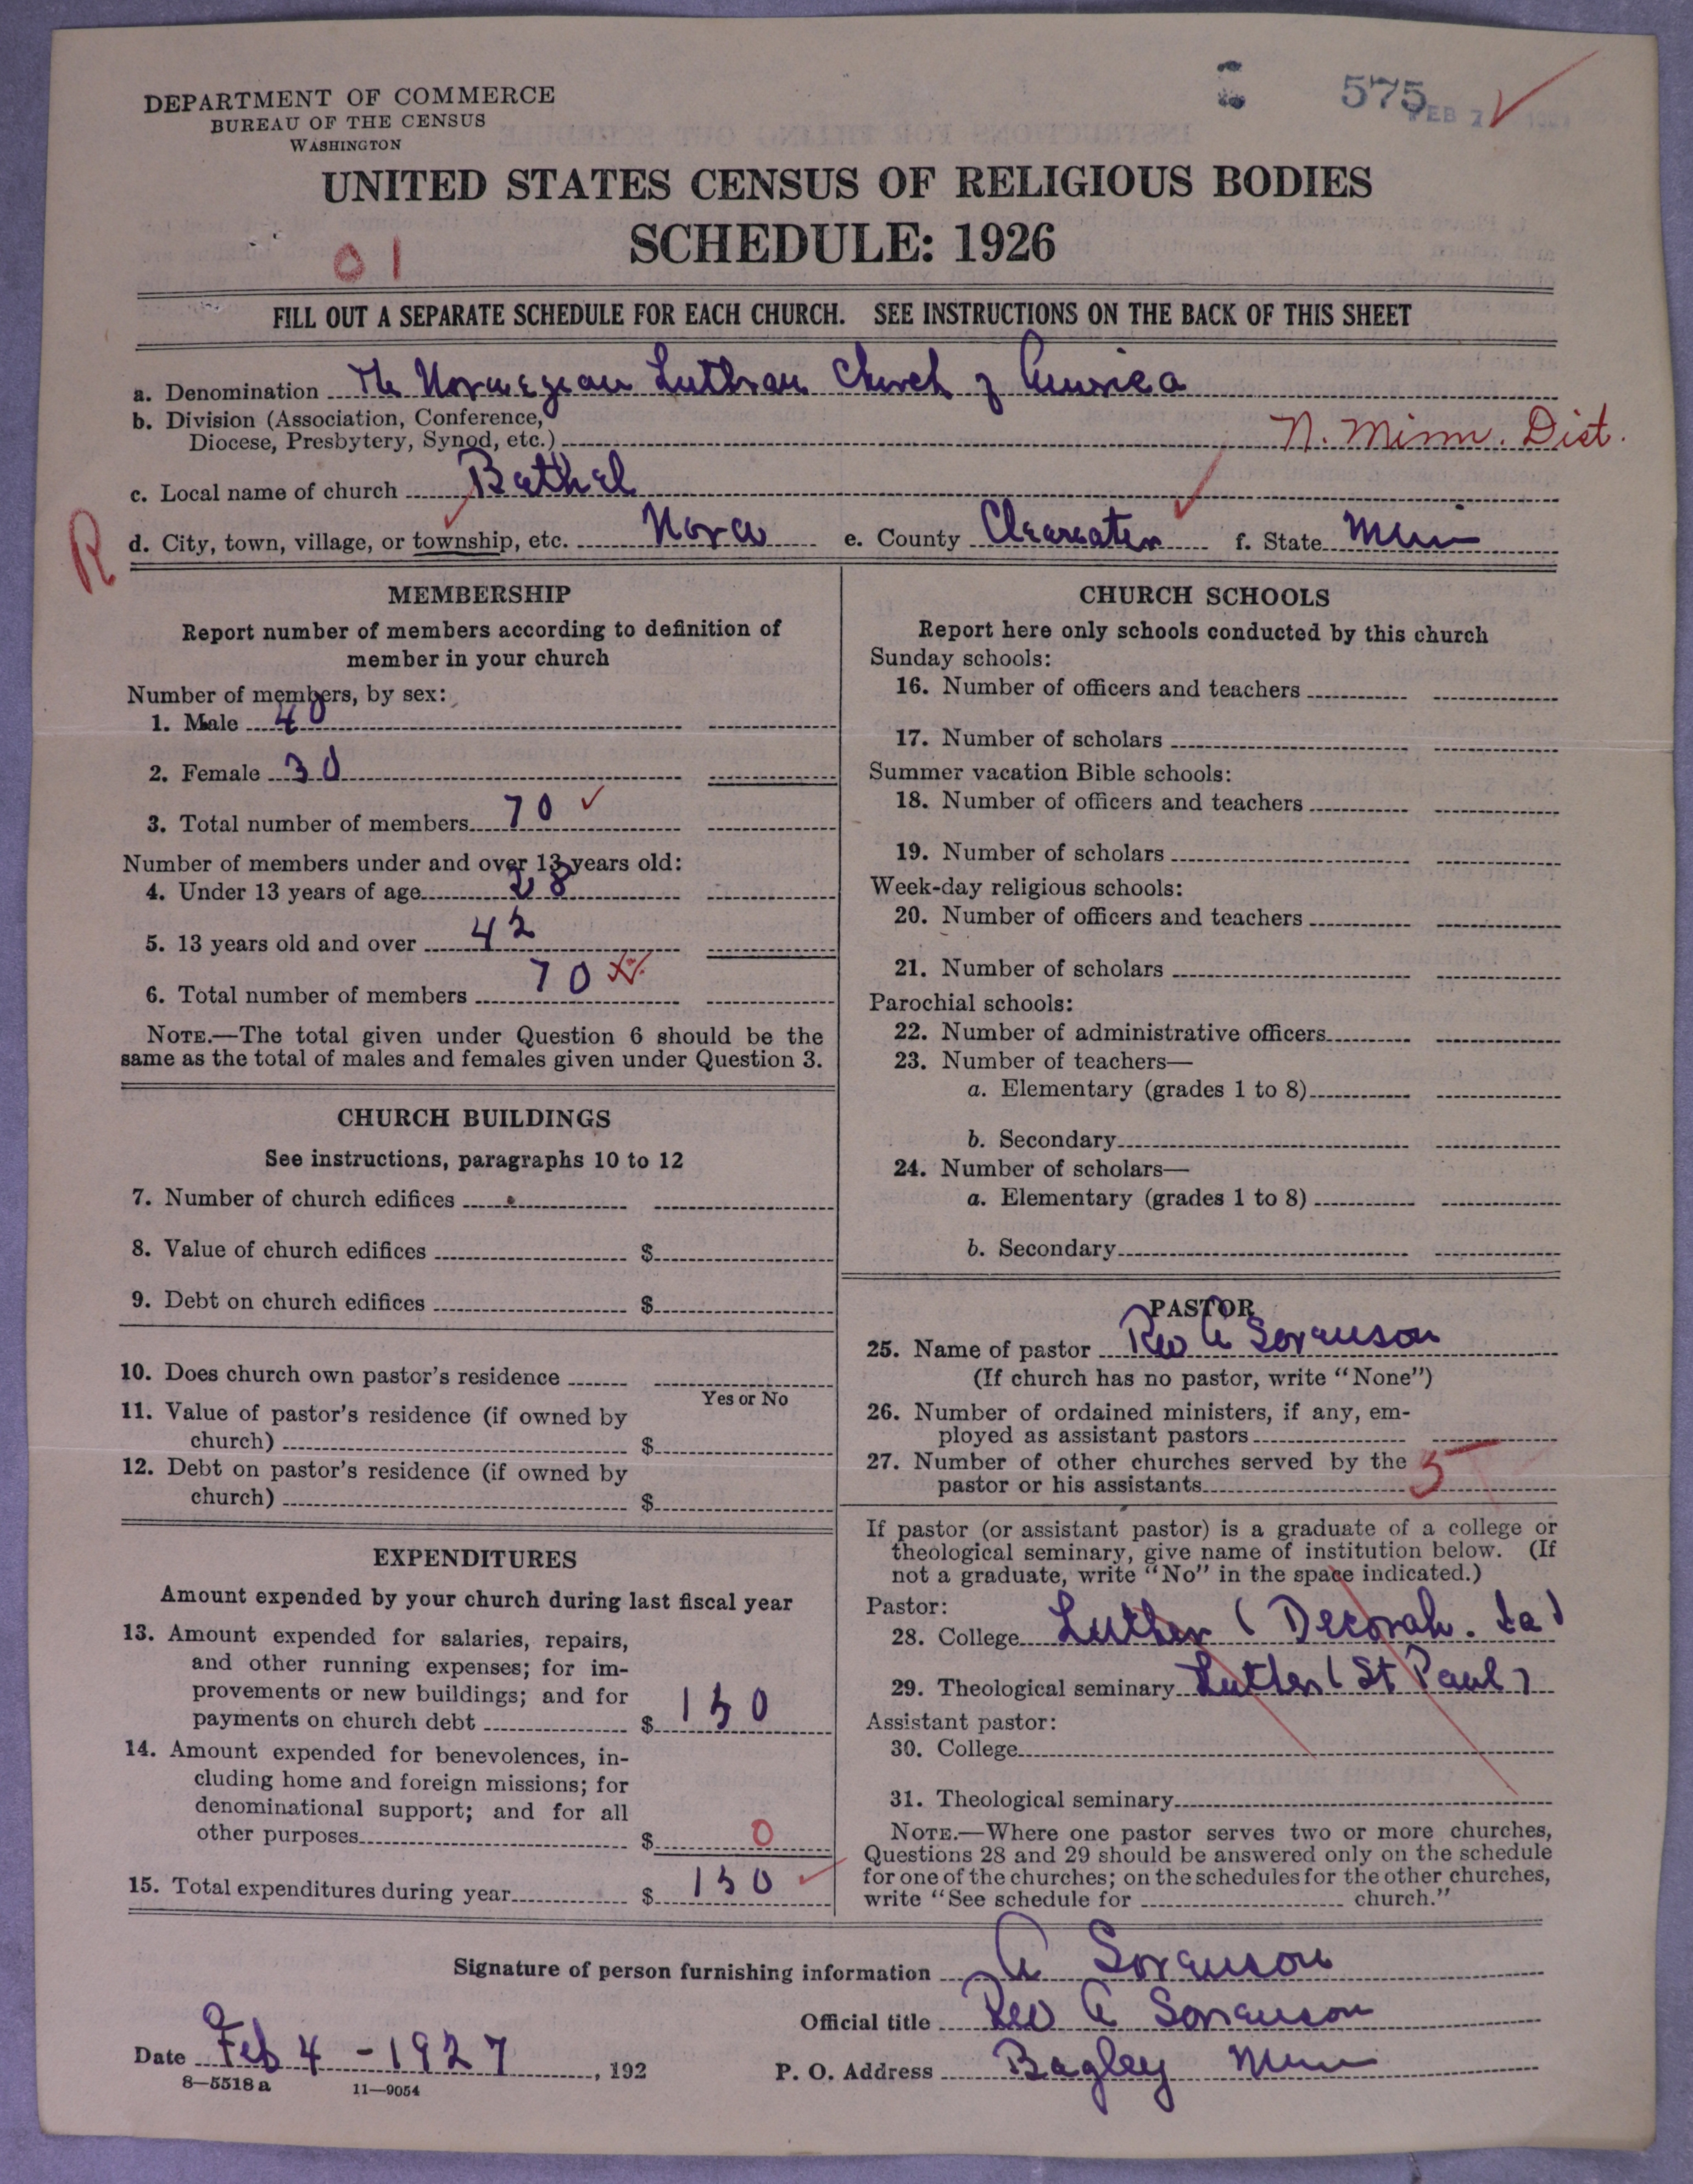 DEPARTMENT OF COMMERCE
BUREAU OF THE CENSUS
WASHINGTON
575
FEB 7
UNITED STATES CENSUS OF RELIGIOUS BODIES
SCHEDULE: 1926
01
FILL OUT A SEPARATE SCHEDULE FOR EACH CHURCH. SEE INSTRUCTIONS ON THE BACK OF THIS SHEET
a. Denomination The Norwegian Lutheran Church of America
b. Division (Association, Conference,
Diocese, Presbytery, Synod, etc.) N. Minn. Dist.
c. Local name of church Bethel
R
d. City, town, village, or township, etc. Nora e. County Clearwater f. State Minn
MEMBERSHIP
Report number of members according to definition of
member in your church
Number of members, by sex:
1. Male 40
2. Female 30
3. Total number of members 70
Number of members under and over 13 years old:
4. Under 13 years of age 28
5. 13 years old and over 42
6. Total number of members 70
NOTE.—The total given under Question 6 should be the
same as the total of males and females given under Question 3.
CHURCH BUILDINGS
See instructions, paragraphs 10 to 12
7. Number of church edifices
8. Value of church edifices $
9. Debt on church edifices $
10. Does church own pastor's residence
Yes or No
11. Value of pastor's residence (if owned by
church) $
12. Debt on pastor's residence (if owned by
church) $
EXPENDITURES
Amount expended by your church during last fiscal year
13. Amount expended for salaries, repairs,
and other running expenses; for im-
provements or new buildings; and for
payments on church debt $ 150
14. Amount expended for benevolences, in-
cluding home and foreign missions; for
denominational support; and for all
other purposes $ 0
15. Total expenditures during year $ 150
CHURCH SCHOOLS
Report here only schools conducted by this church
Sunday schools:
16. Number of officers and teachers
17. Number of scholars
Summer vacation Bible schools:
18. Number of officers and teachers
19. Number of scholars
Week-day religious schools:
20. Number of officers and teachers
21. Number of scholars
Parochial schools:
22. Number of administrative officers
23. Number of teachers—
a. Elementary (grades 1 to 8)
b. Secondary
24. Number of scholars—
a. Elementary (grades 1 to 8)
b. Secondary
PASTOR
25. Name of pastor Rev A Sorenson
(If church has no pastor, write "None")
26. Number of ordained ministers, if any, em-
ployed as assistant pastors
27. Number of other churches served by the
pastor or his assistants 5
If pastor (or assistant pastor) is a graduate of a college or
theological seminary, give name of institution below. (If
not a graduate, write "No" in the space indicated.)
Pastor:
28. College Luther (Decorah. Ia)
29. Theological seminary Luther (St Paul)
Assistant pastor:
30. College
31. Theological seminary
NOTE.—Where one pastor serves two or more churches,
Questions 28 and 29 should be answered only on the schedule
for one of the churches; on the schedules for the other churches,
write "See schedule for church."
Signature of person furnishing information A Sorenson
Official title Rev A Sorenson
Date Feb 4 - 1927, 192 P. O. Address Bagley Minn
8—5518 a 11—9054